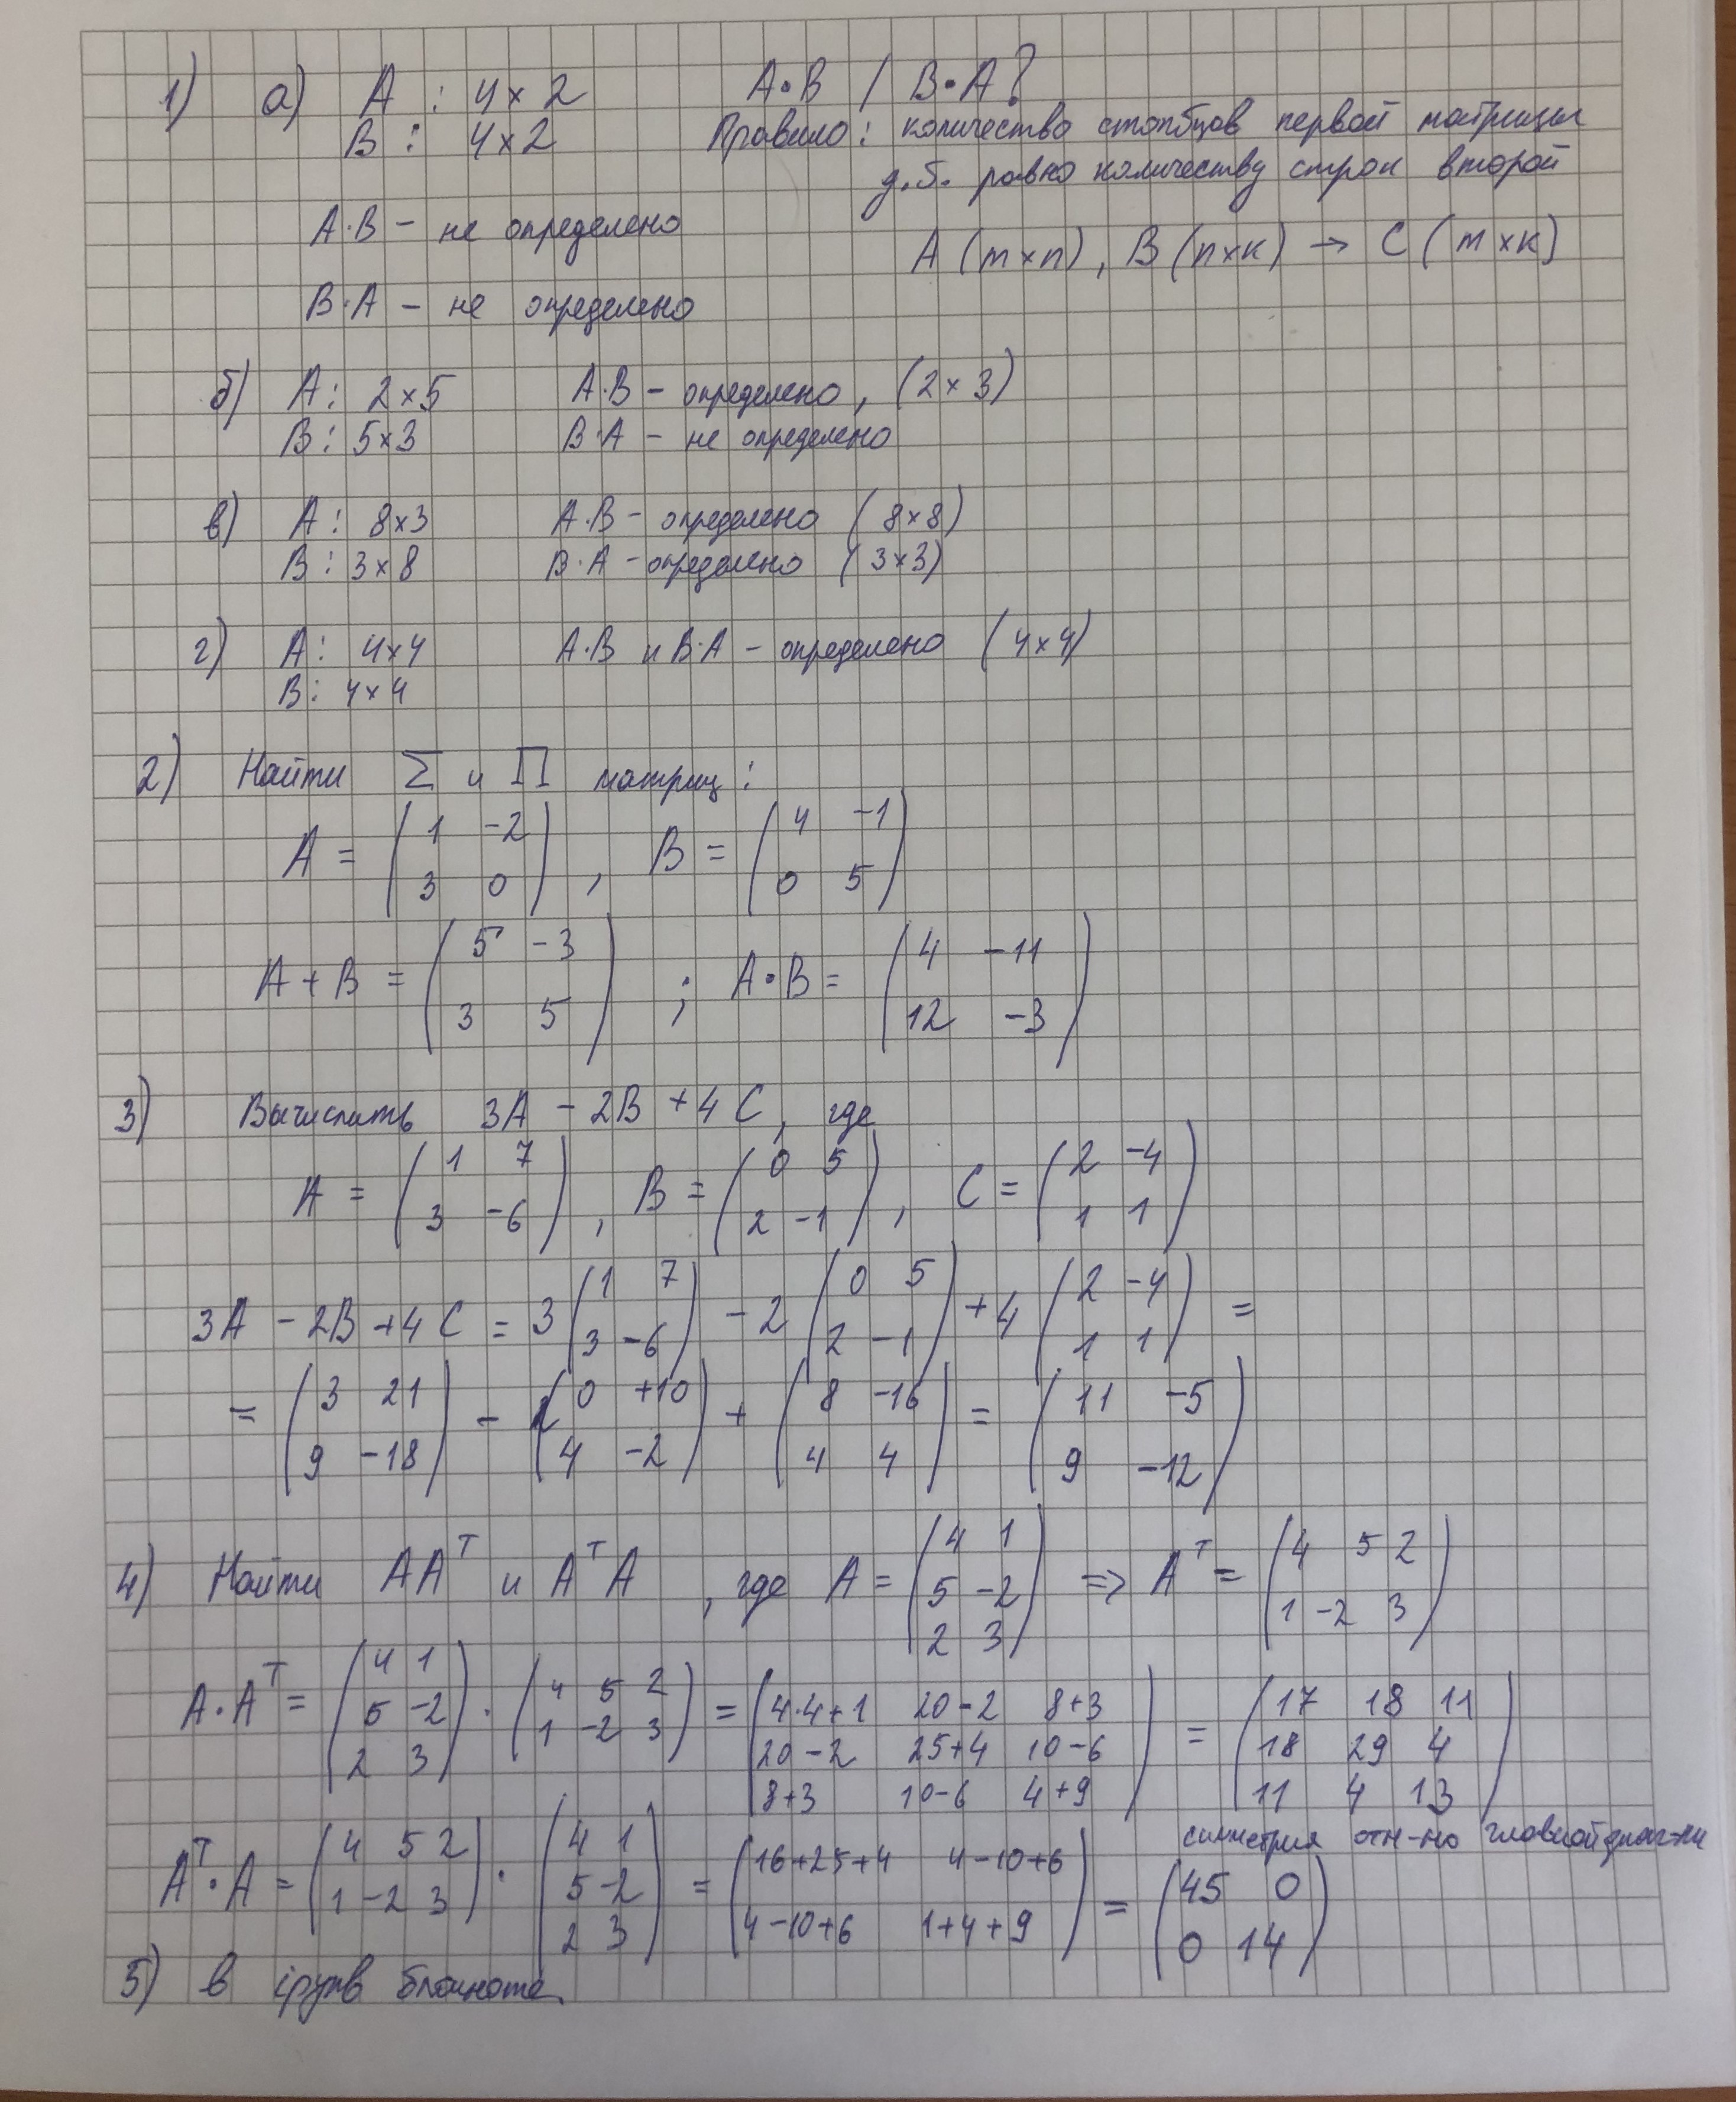 1) а) A : 4×2 A·B / B·A?
B : 4×2 Правило: количество столбцов первой матрицы
д.б. равно количеству строк второй
A·B – не определено
A (m×n), B (n×к) → C (m×к)
B·A – не определено
б) A: 2×5 A·B – определено, (2×3)
B: 5×3 B·A – не определено
в) A: 8×3 A·B – определено (8×8)
B: 3×8 B·A – определено (3×3)
г) A: 4×4 A·B и B·A – определено (4×4)
B: 4×4
2) Найти Σ и Π матриц:
A = (1 -2
3 0), B = (4 -1
0 5)
A + B = (5 -3
3 5) ; A·B = (4 -11
12 -3)
3) Вычислить 3A – 2B + 4C, где
A = (1 7
3 -6), B = (0 5
2 -1), C = (2 -4
1 1)
3A – 2B + 4C = 3 (1 7
3 -6) – 2 (0 5
2 -1) + 4 (2 -4
1 1) =
= (3 21
9 -18) – (0 +10
4 -2) + (8 -16
4 4) = (11 -5
9 -12)
4) Найти AAᵀ и AᵀA, где A = (4 1
5 -2
2 3) => Aᵀ = (4 5 2
1 -2 3)
A·Aᵀ = (4 1
5 -2
2 3) · (4 5 2
1 -2 3) = (4·4+1 20-2 8+3
20-2 25+4 10-6
8+3 10-6 4+9) = (17 18 11
18 29 4
11 4 13)
симметрия отн-но главной диаг-ли
Aᵀ·A = (4 5 2
1 -2 3) · (4 1
5 -2
2 3) = (16+25+4 4-10+6
4-10+6 1+4+9) = (45 0
0 14)
5) в блокноте